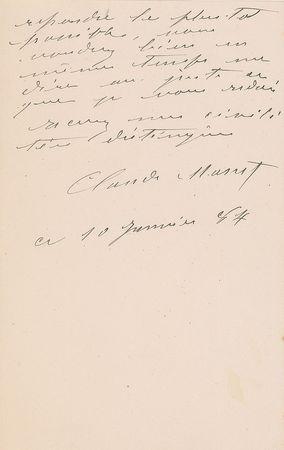 repondre le plus tot
possible, vous
voudrez bien en
même temps me
dire au juste ce
que je vous redois
recevez mes civili
tés distinguées
Claude Monet
ce 10 Janvier 84